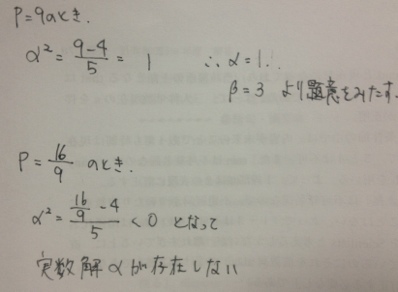 P=9のとき.
α² = (9-4)/5 = 1 ∴ α=1.
β=3 より題意をみたす.
P=16/9 のとき.
α² = (16/9 - 4)/5 < 0 となって
実数解αが存在しない